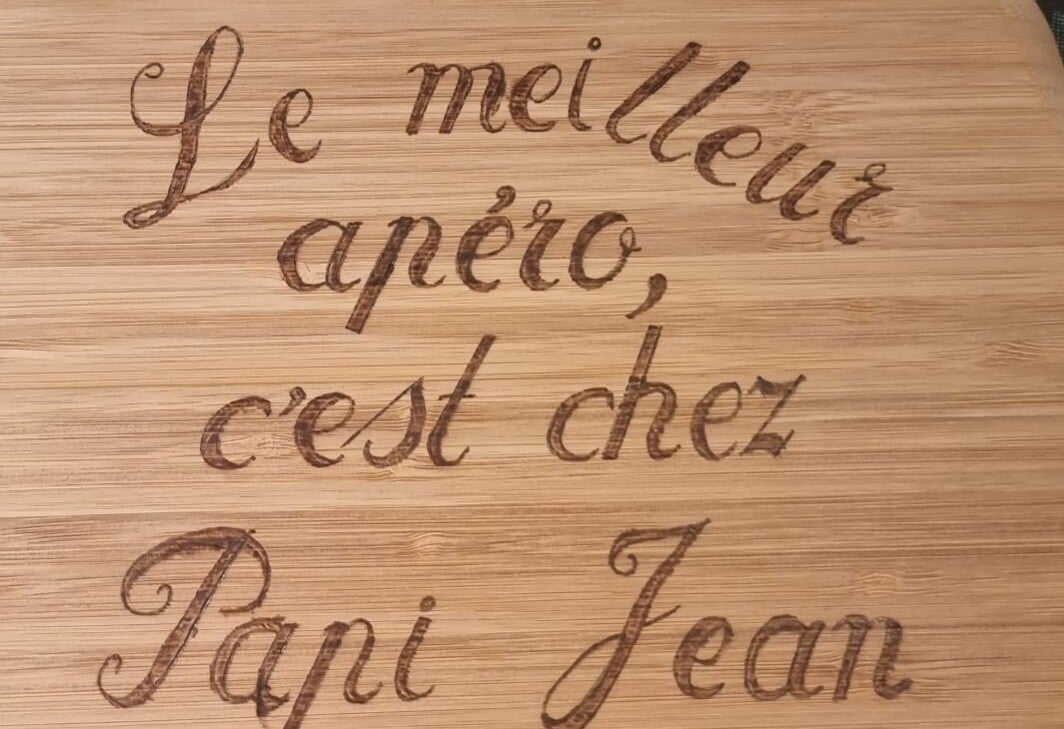 Le meilleur
apéro,
c'est chez
Papi Jean